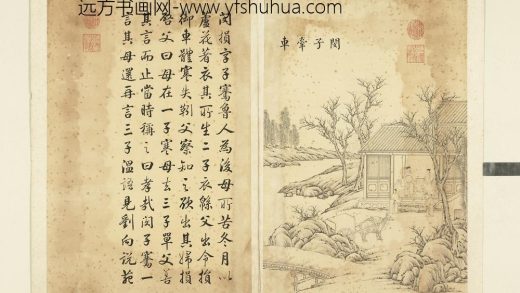 远方书画网-www.yfshuhua.com
閔子牽車
閔損字子騫魯人為後母所苦冬月以
蘆花著衣其所生二子衣綿父出令損
御車體寒失靷父察知之欲出其婦損
啓父曰母在一子寒母去三子單父善
其言而止當時稱之曰孝哉閔子騫一
言其母還再言三子溫語見劉向說苑